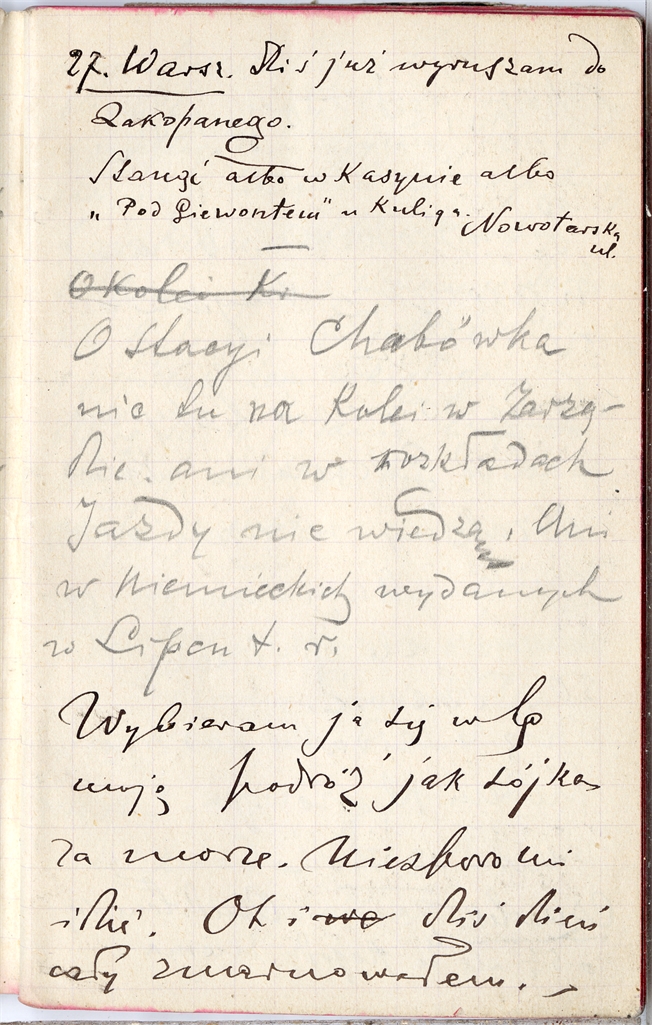 27. Warsz. Dziś już wyruszam do
Zakopanego.
Stangi albo w Kasynie albo
„Pod Giewontem" u Kuliga. Nowotarska
ul.
O kolei Kr
O stacyi Chabówka
nic tu na kolei w Zarzą-
dzie. ani w rozkładach
Jazdy nie wiedzą. Ani
w niemieckich wydanych
w Lipcu t. r.
Wybieram ja się w tę
moję podróż jak sójka
za morze. Niesporo mi
idzie. Ot i we dziś dzień
cały zmarnowałem.